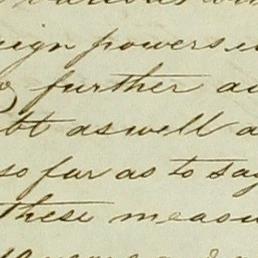 various
eign powers
further
bt as well a
so far as to say
these measu